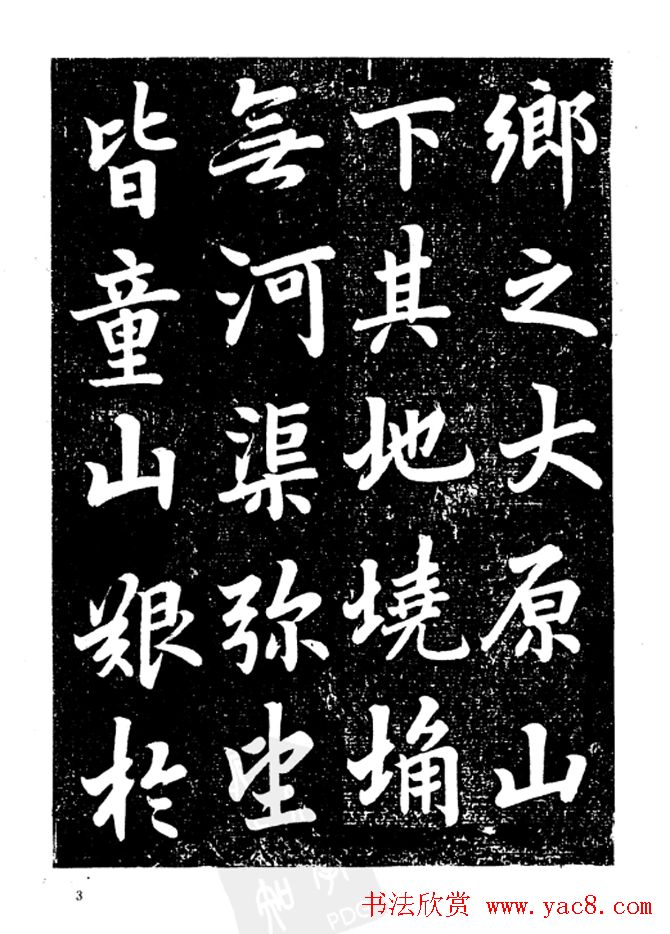 鄉之大原山
下其地墝埆
無河渠弥望
皆童山艱於
3
PDG
书法欣赏 www.yac8.com